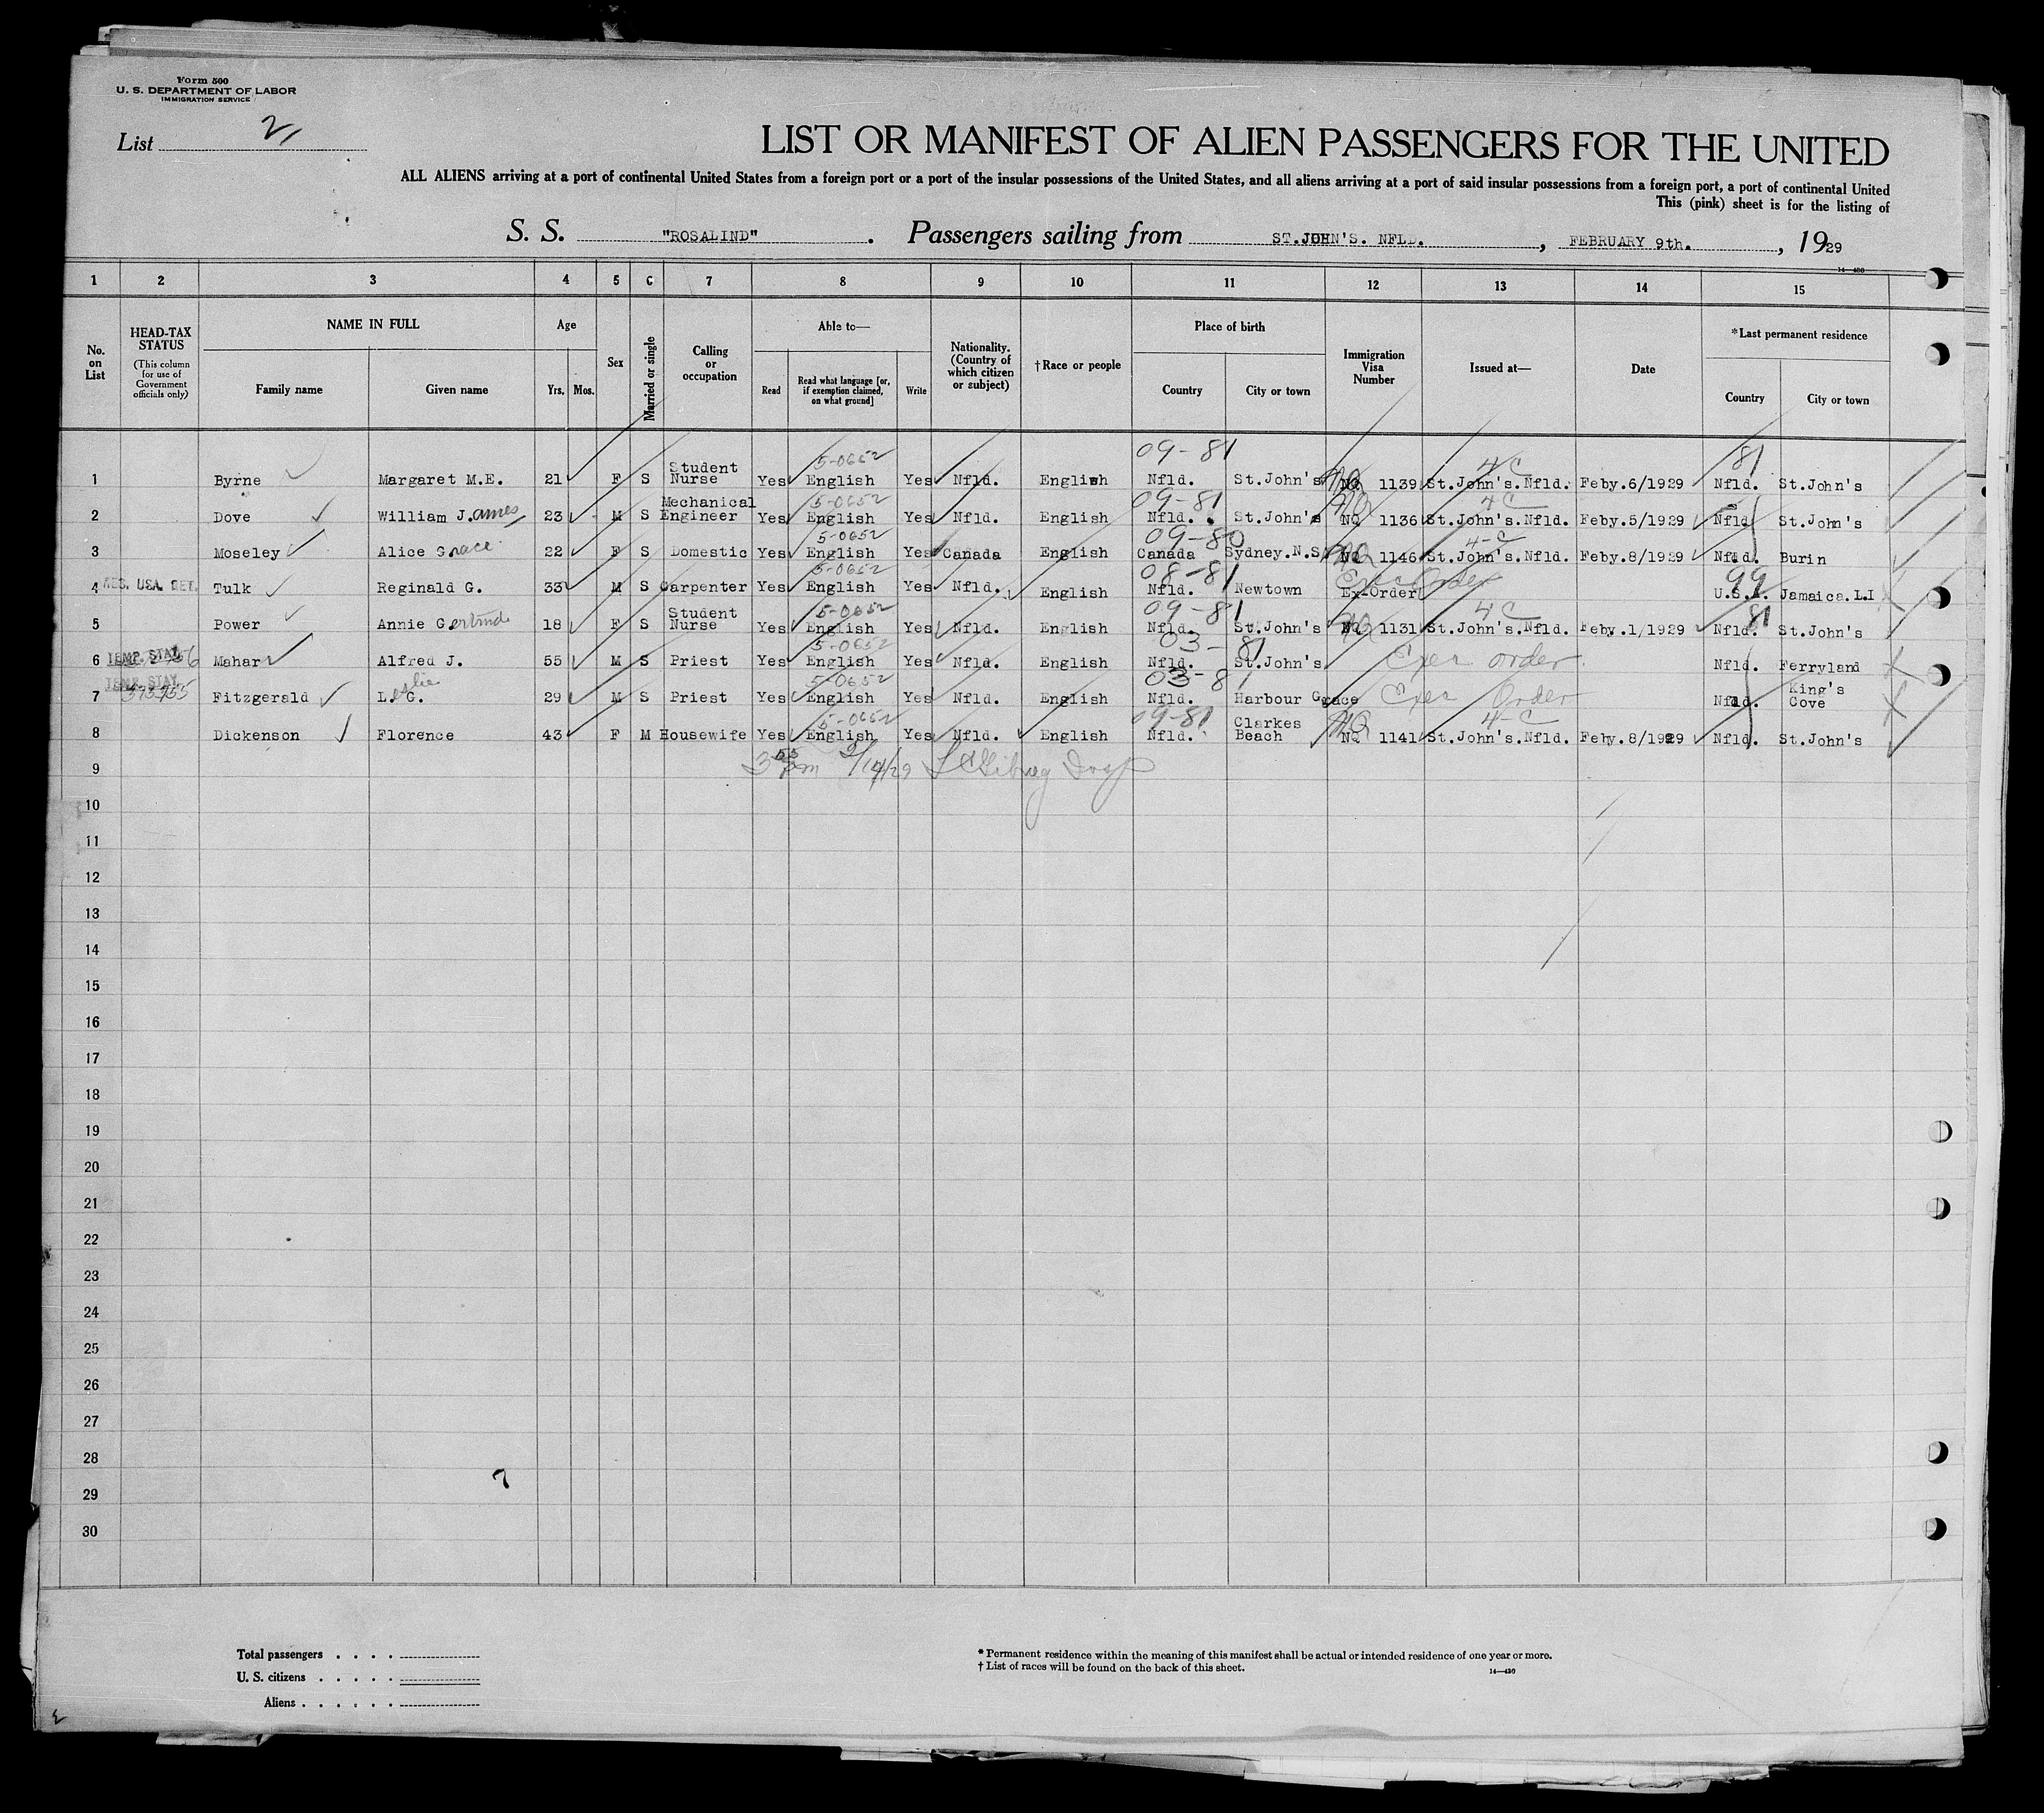 Form 500
U. S. DEPARTMENT OF LABOR
IMMIGRATION SERVICE
List 2
LIST OR MANIFEST OF ALIEN PASSENGERS FOR THE UNITED
ALL ALIENS arriving at a port of continental United States from a foreign port or a port of the insular possessions of the United States, and all aliens arriving at a port of said insular possessions from a foreign port, a port of continental United
This (pink) sheet is for the listing of
S. S. "ROSALIND". Passengers sailing from ST.JOHN'S. NFLD., FEBRUARY 9th., 1929
14—430
1 2 3 4 5 6 7 8 9 10 11 12 13 14 15
No. on List
HEAD-TAX STATUS
(This column for use of Government officials only)
NAME IN FULL
Family name Given name
Age
Yrs. Mos.
Sex
Married or single
Calling or occupation
Able to—
Read Read what language [or, if exemption claimed, on what ground] Write
Nationality. (Country of which citizen or subject)
†Race or people
Place of birth
Country City or town
Immigration Visa Number
Issued at—
Date
*Last permanent residence
Country City or town
5-0652 09-81 4C 81
1 Byrne Margaret M.E. 21 F S Student Nurse Yes English Yes Nfld. English Nfld. St.John's NQ 1139 St.John's.Nfld. Feby.6/1929 Nfld. St.John's
5-0652 09-81 4C
2 Dove William J.ames 23 M S Mechanical Engineer Yes English Yes Nfld. English Nfld. St.John's NQ 1136 St.John's.Nfld. Feby.5/1929 Nfld St.John's
5-0652 09-80 4-C
3 Moseley Alice Grace 22 F S Domestic Yes English Yes Canada English Canada Sydney.N.S NQ 1146 St.John's.Nfld. Feby.8/1929 Nfld. Burin
5-0652 08-81 Exec Order 99
4 RES. USA. RET. Tulk Reginald G. 33 M S Carpenter Yes English Yes Nfld. English Nfld. Newtown Ex-Order U.S.A. Jamaica.L.I
5-0652 09-81 4C 81
5 Power Annie Gertrude 18 F S Student Nurse Yes English Yes Nfld. English Nfld. St.John's NQ 1131 St.John's.Nfld. Feby.1/1929 Nfld. St.John's
5-0652 03-81
6 TEMP. STAY Mahar Alfred J. 55 M S Priest Yes English Yes Nfld. English Nfld. St.John's Exer order. Nfld. Ferryland
5-0652 03-81
7 TEMP. STAY Fitzgerald Leslie G. 29 M S Priest Yes English Yes Nfld. English Nfld. Harbour Grace Exer Order Nfld. King's Cove
5-0652 09-81 4-C
8 Dickenson Florence 43 F M Housewife Yes English Yes Nfld. English Nfld. Clarkes Beach NQ 1141 St.John's.Nfld. Feby.8/1929 Nfld. St.John's
9 3 55 pm 2/14/29
10
11
12
13
14
15
16
17
18
19
20
21
22
23
24
25
26
27
28
29
30
Total passengers
U. S. citizens
Aliens
* Permanent residence within the meaning of this manifest shall be actual or intended residence of one year or more.
† List of races will be found on the back of this sheet.
14—430